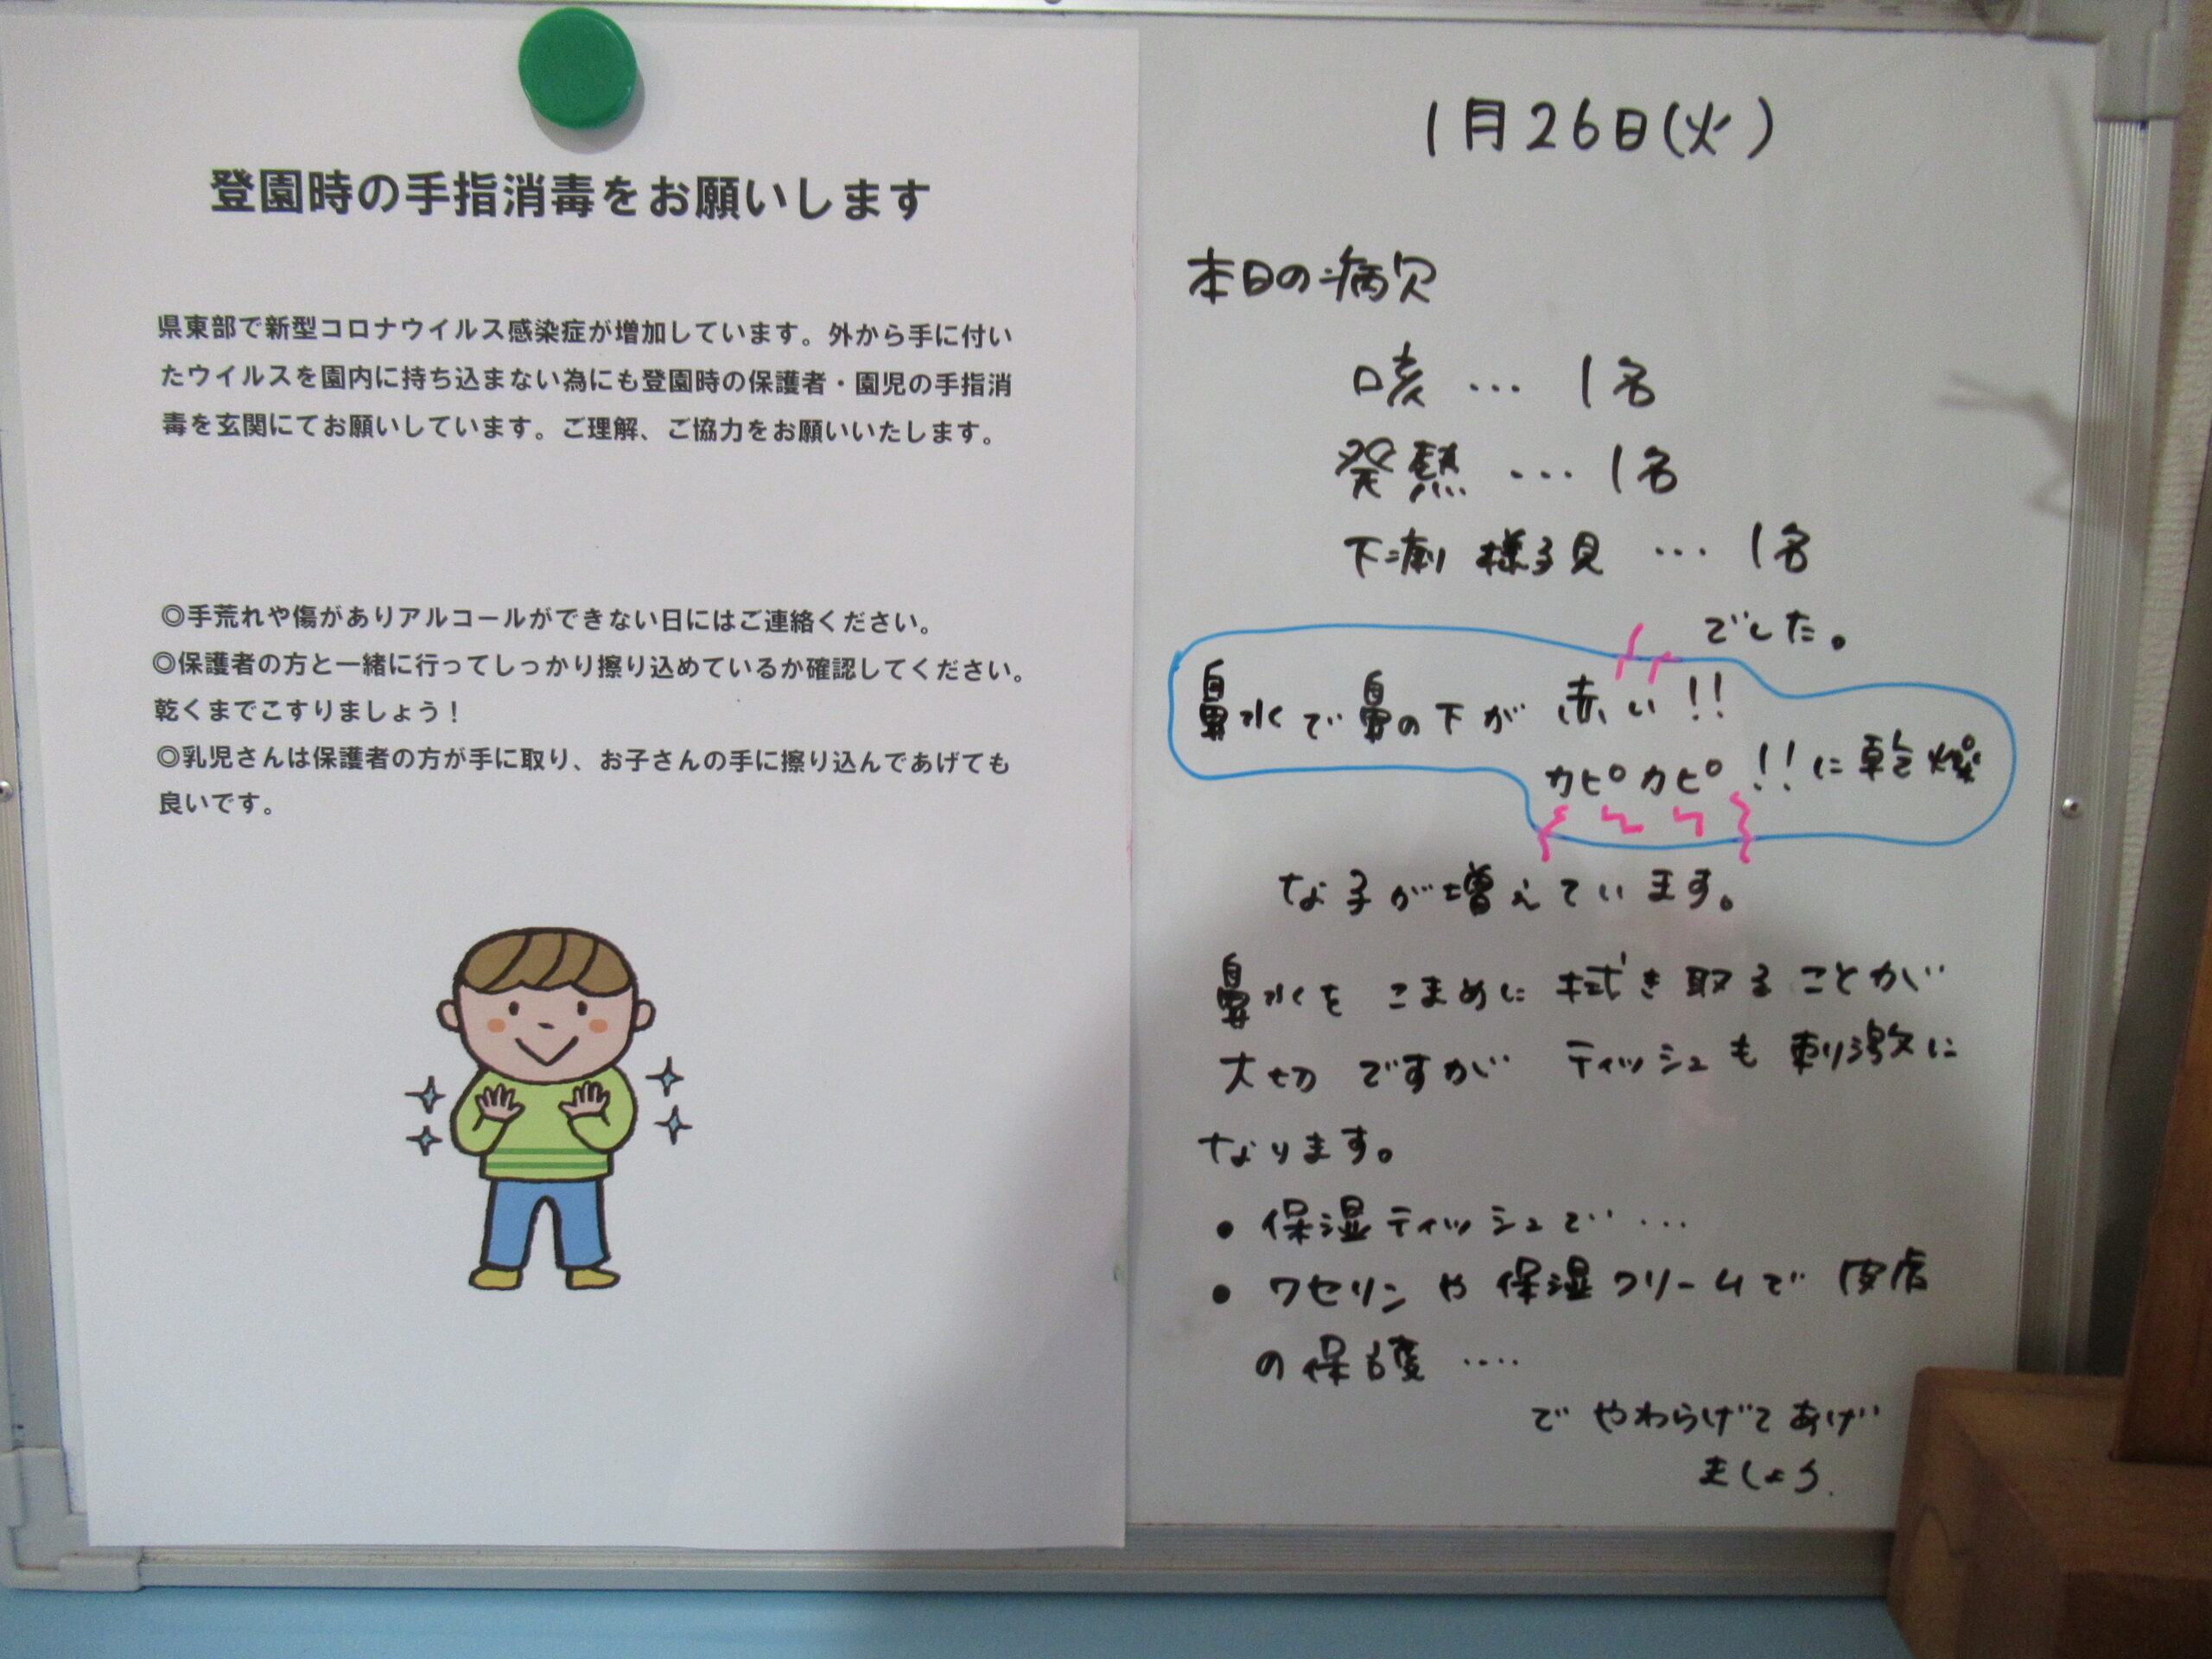 登園時の手指消毒をお願いします
県東部で新型コロナウイルス感染症が増加しています。外から手に付い
たウイルスを園内に持ち込まない為にも登園時の保護者・園児の手指消
毒を玄関にてお願いしています。ご理解、ご協力をお願いいたします。
◎手荒れや傷がありアルコールができない日にはご連絡ください。
◎保護者の方と一緒に行ってしっかり擦り込めているか確認してください。
乾くまでこすりましょう！
◎乳児さんは保護者の方が手に取り、お子さんの手に擦り込んであげても
良いです。
1月26日(火)
本日の病欠
咳 … 1名
発熱 … 1名
下痢 様子見 … 1名
でした。
鼻水で鼻の下が 赤い!!
カピカピ!!に乾燥
な子が増えています。
鼻水を こまめに 拭き取ることが
大切 ですが ティッシュも 刺激に
なります。
• 保湿ティッシュで …
• ワセリン や 保湿クリームで 皮膚
の保護 ‥‥
で やわらげてあげ
ましょう.